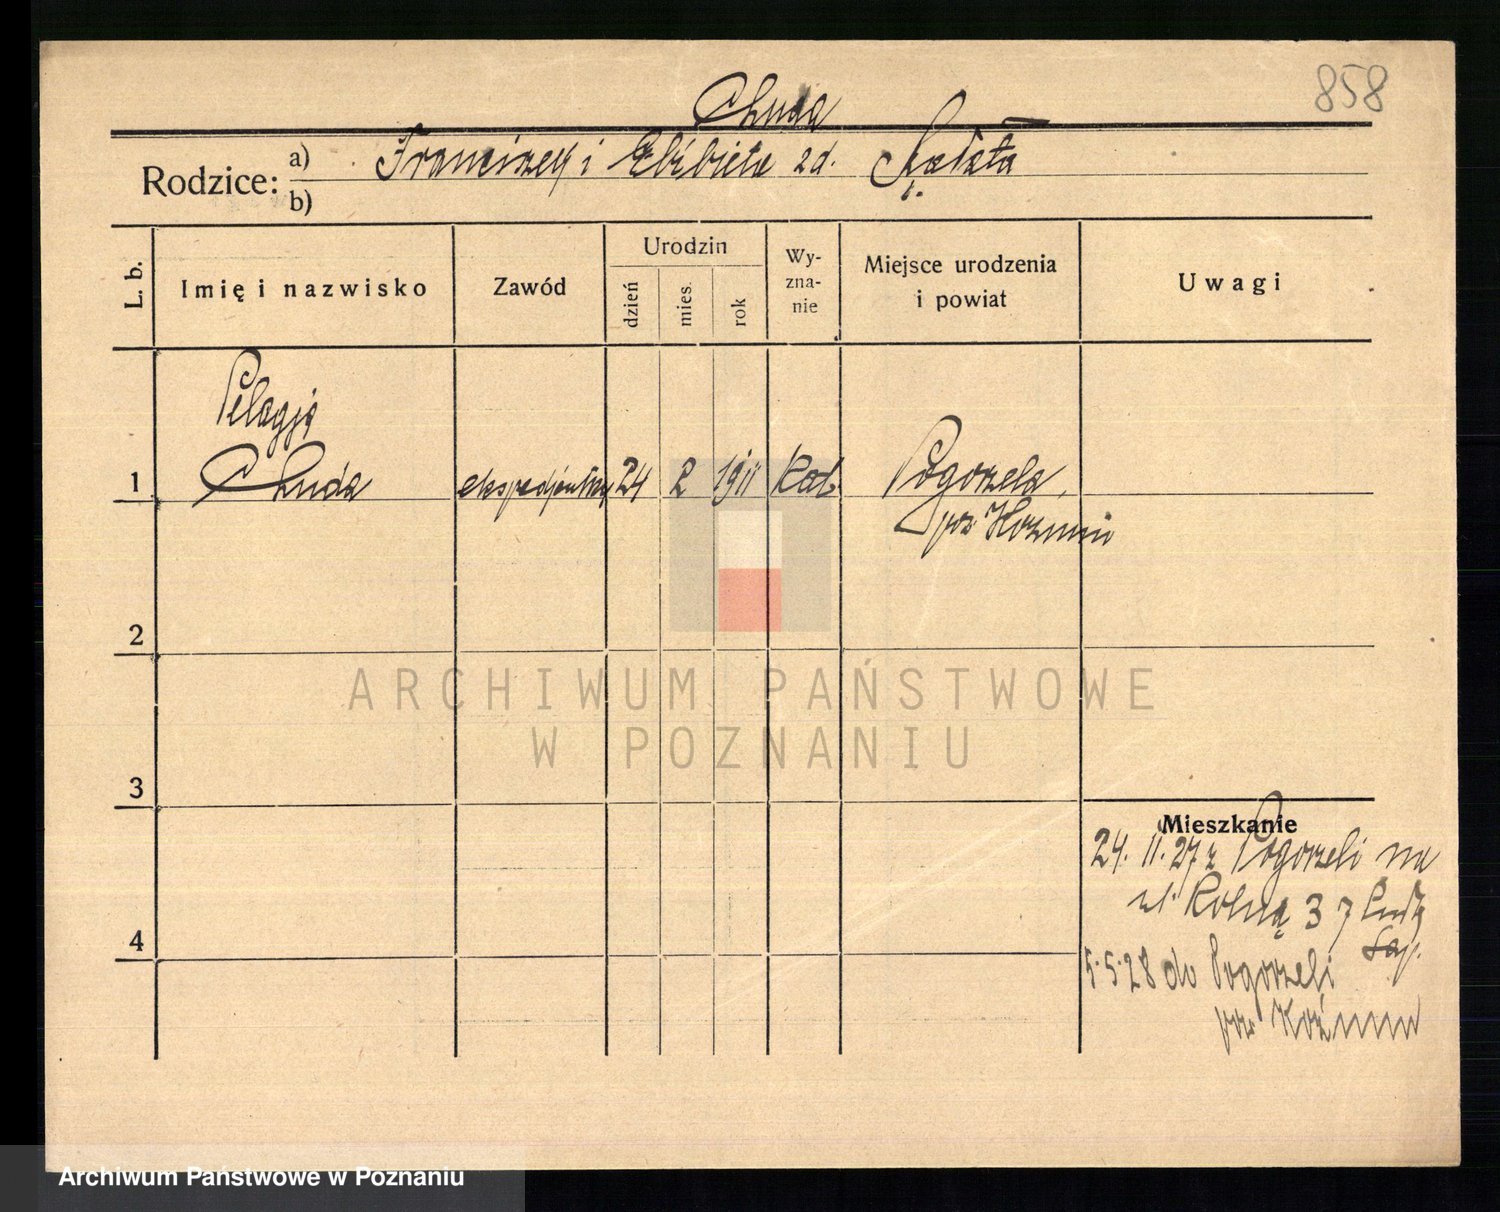 858
Chuda
Rodzice: a) Franciszek i Elżbieta zd.
b)
L. b.
Imię i nazwisko
Zawód
Urodzin
dzień
mies.
rok
Wy-
zna-
nie
Miejsce urodzenia
i powiat
Uwagi
Pelagja
1 Chuda ekspedjentka 24 2 1911 Kat. Pogorzela,
pow. Koźmin
2
ARCHIWUM PAŃSTWOWE
W POZNANIU
3
Mieszkanie
24. 11. 27 z Pogorzeli na
ul. Rolną 37
4
5.5.28 do Pogorzeli
pow. Koźmin
Archiwum Państwowe w Poznaniu